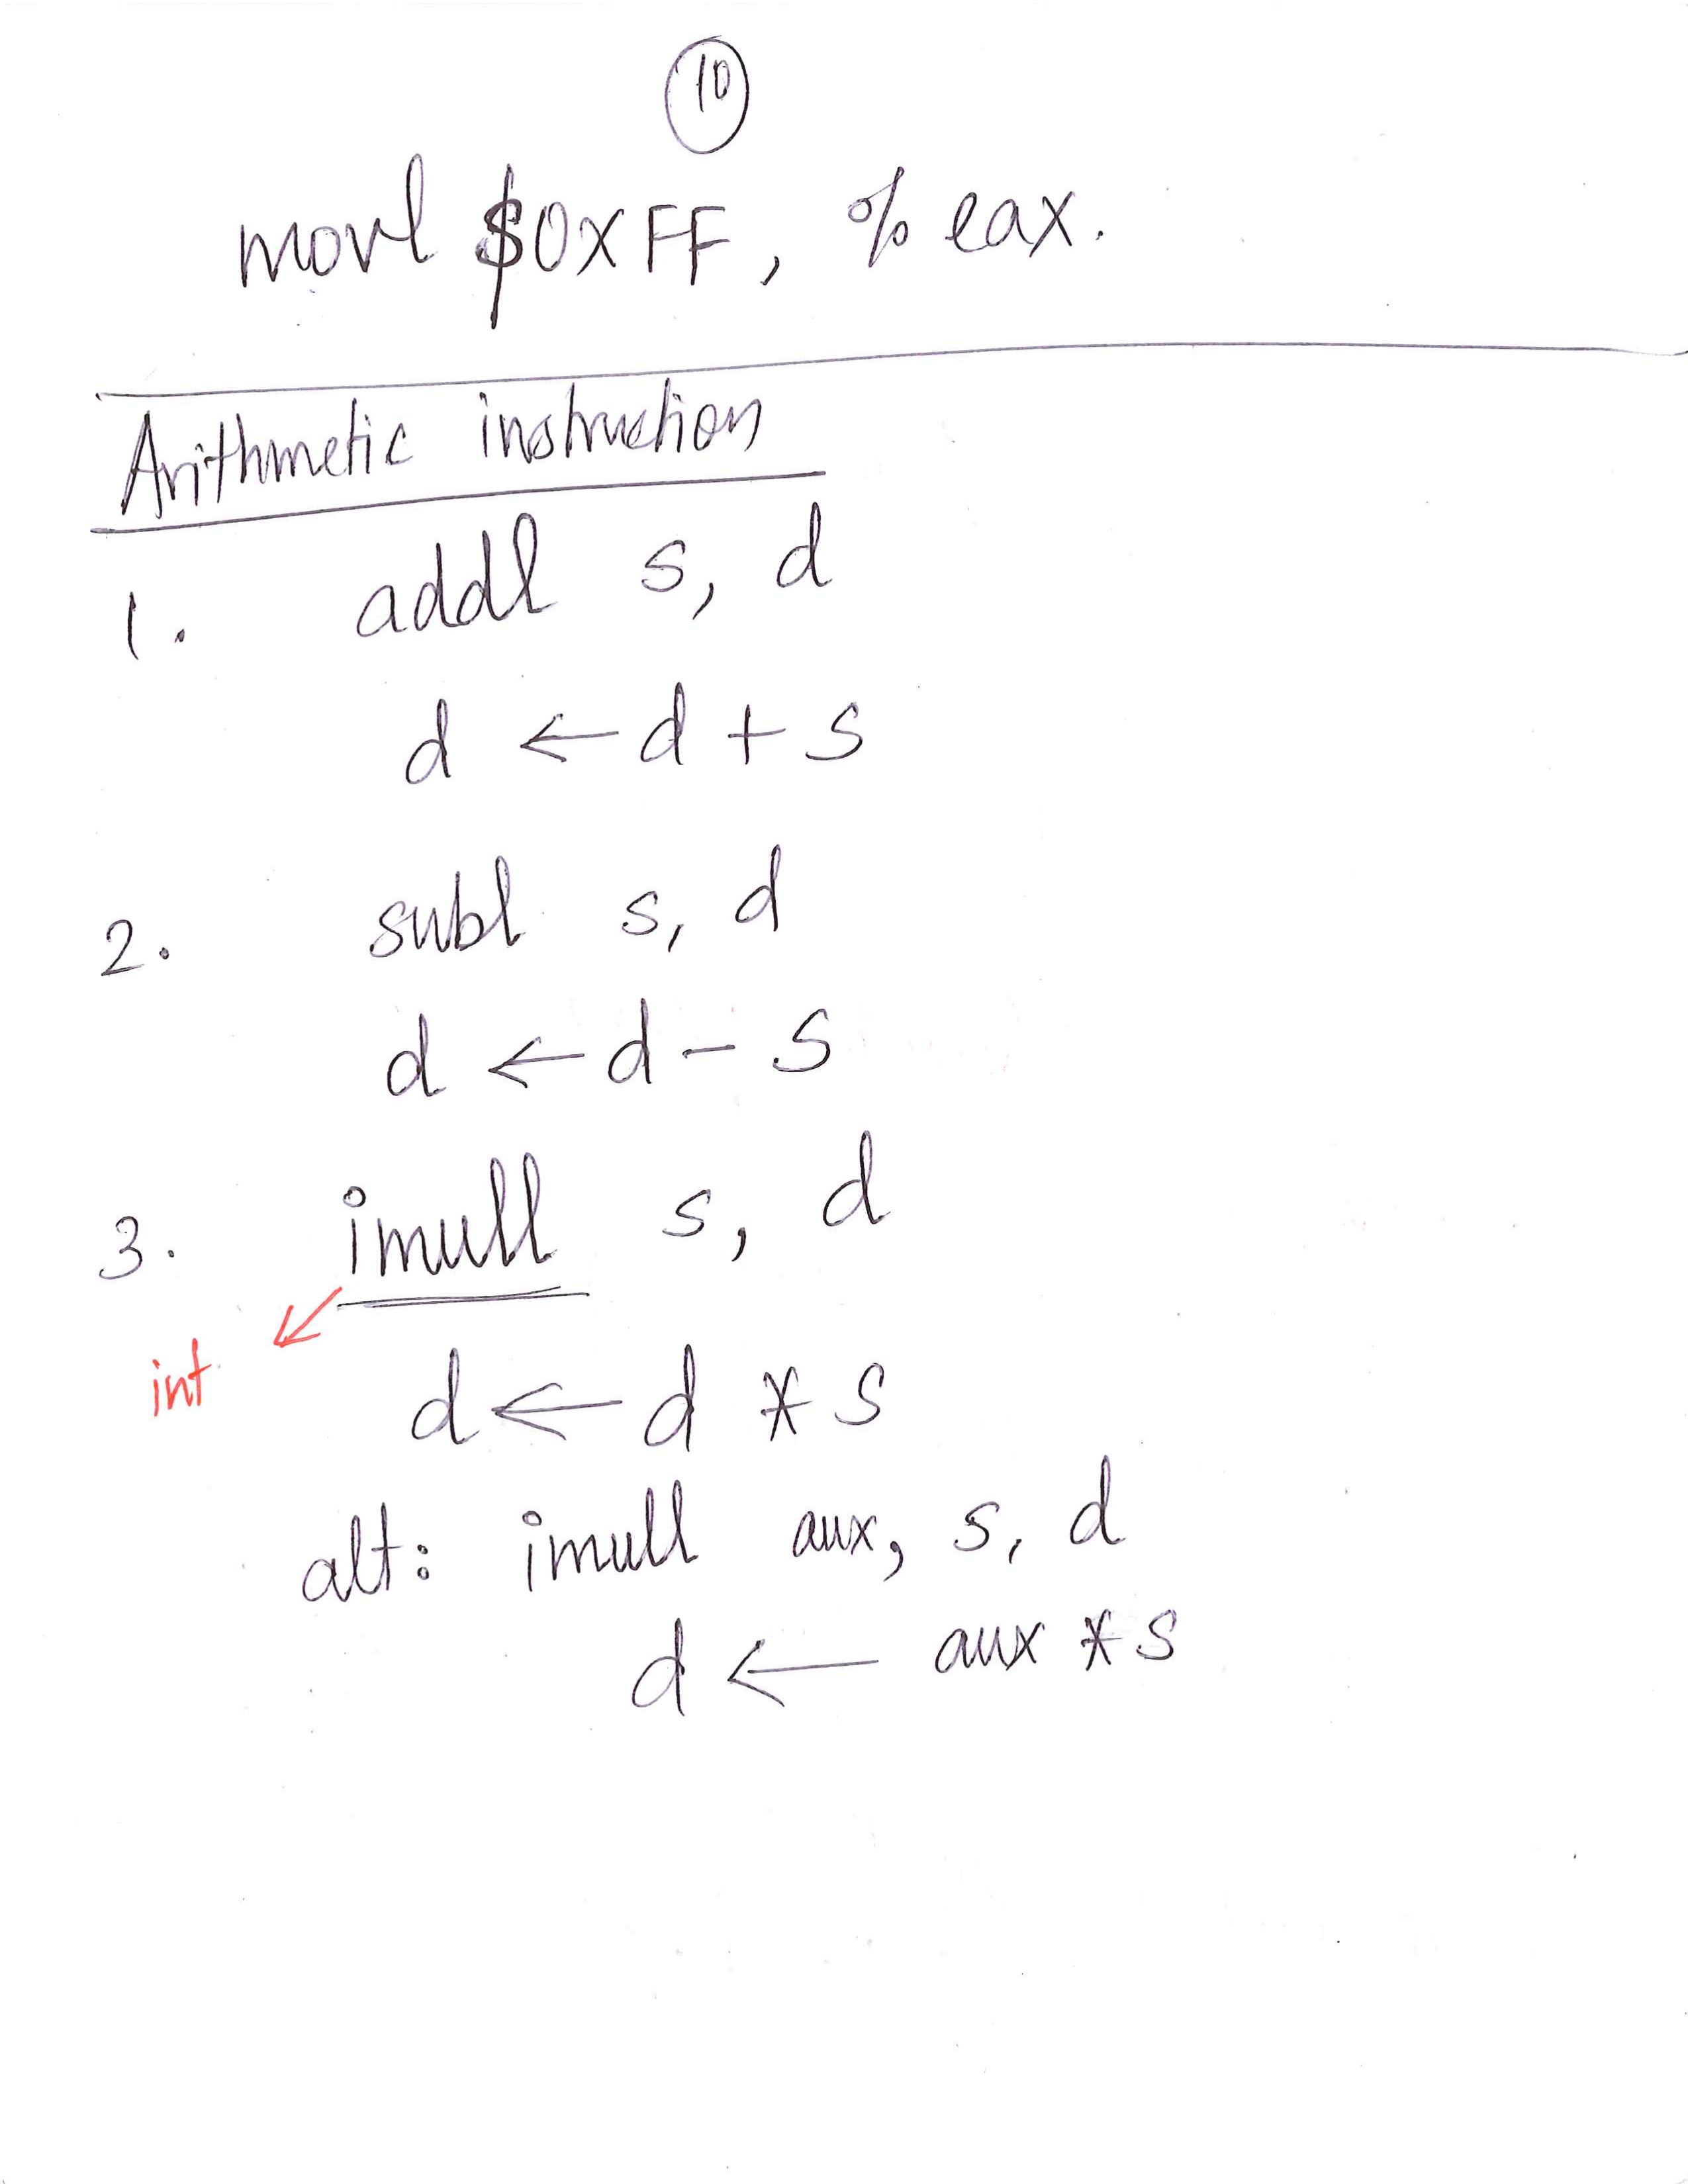 10
movl $0xFF, % eax.
Arithmetic instruction
1. addl s, d
d ← d + s
2. subl s, d
d ← d - s
3. imull s, d
int
d ← d * s
alt: imull aux, s, d
d ← aux * s